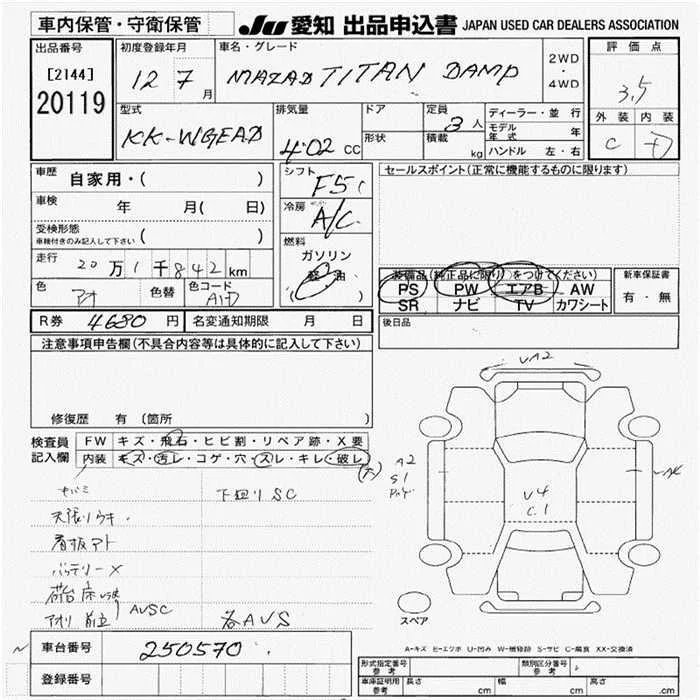 車内保管・守衛保管
JU 愛知 出品申込書 JAPAN USED CAR DEALERS ASSOCIATION
出品番号
[2144]
20119
初度登録年月
12 7 月
車名・グレード
MAZAD TITAN DAMP
2WD
・
4WD
評価点
3.5
外装 内装
C D
型式
KK-WGEAD
排気量
4.02 CC
ドア
形状
定員
3 人
積載
kg
ディーラー・並行
モデル年式 年
ハンドル 左・右
車歴
自家用・( )
車検
年 月( 日)
受検形態
車検付きのみ記入して下さい ( )
走行
20万1千842km
色
アオ
色替
色コード
シフト
F5
冷房
A/C
燃料
ガソリン
軽油
( )
セールスポイント(正常に機能するものに限ります)
装備品(純正品に限り)をつけてください
PS PW エアB AW
SR ナビ TV カワシート
新車保証書
有・無
後日品
R券 4680 円
名変通知期限 月 日
注意事項申告欄(不具合内容等は具体的に記入して下さい)
修復歴 有(箇所 )
検査員
記入欄
FW キズ・飛石・ヒビ割・リペア跡・X要
内装 キズ・汚レ・コゲ・穴・スレ・キレ・破レ
(大)
下廻りSC
天張りウキ
看板アト
バッテリーX
荷台床
アオリ前立
AVSC
各AVS
UA2
A2
S1
U4
C1
スペア
車台番号
250570
登録番号
A-キズ E-エクボ U-凹み W-補修跡 S-サビ C-腐食 XX-交換済
形式指定番号
参考
類別区分番号
参考
車庫証明用
参考
長さ cm
幅 cm
高さ cm